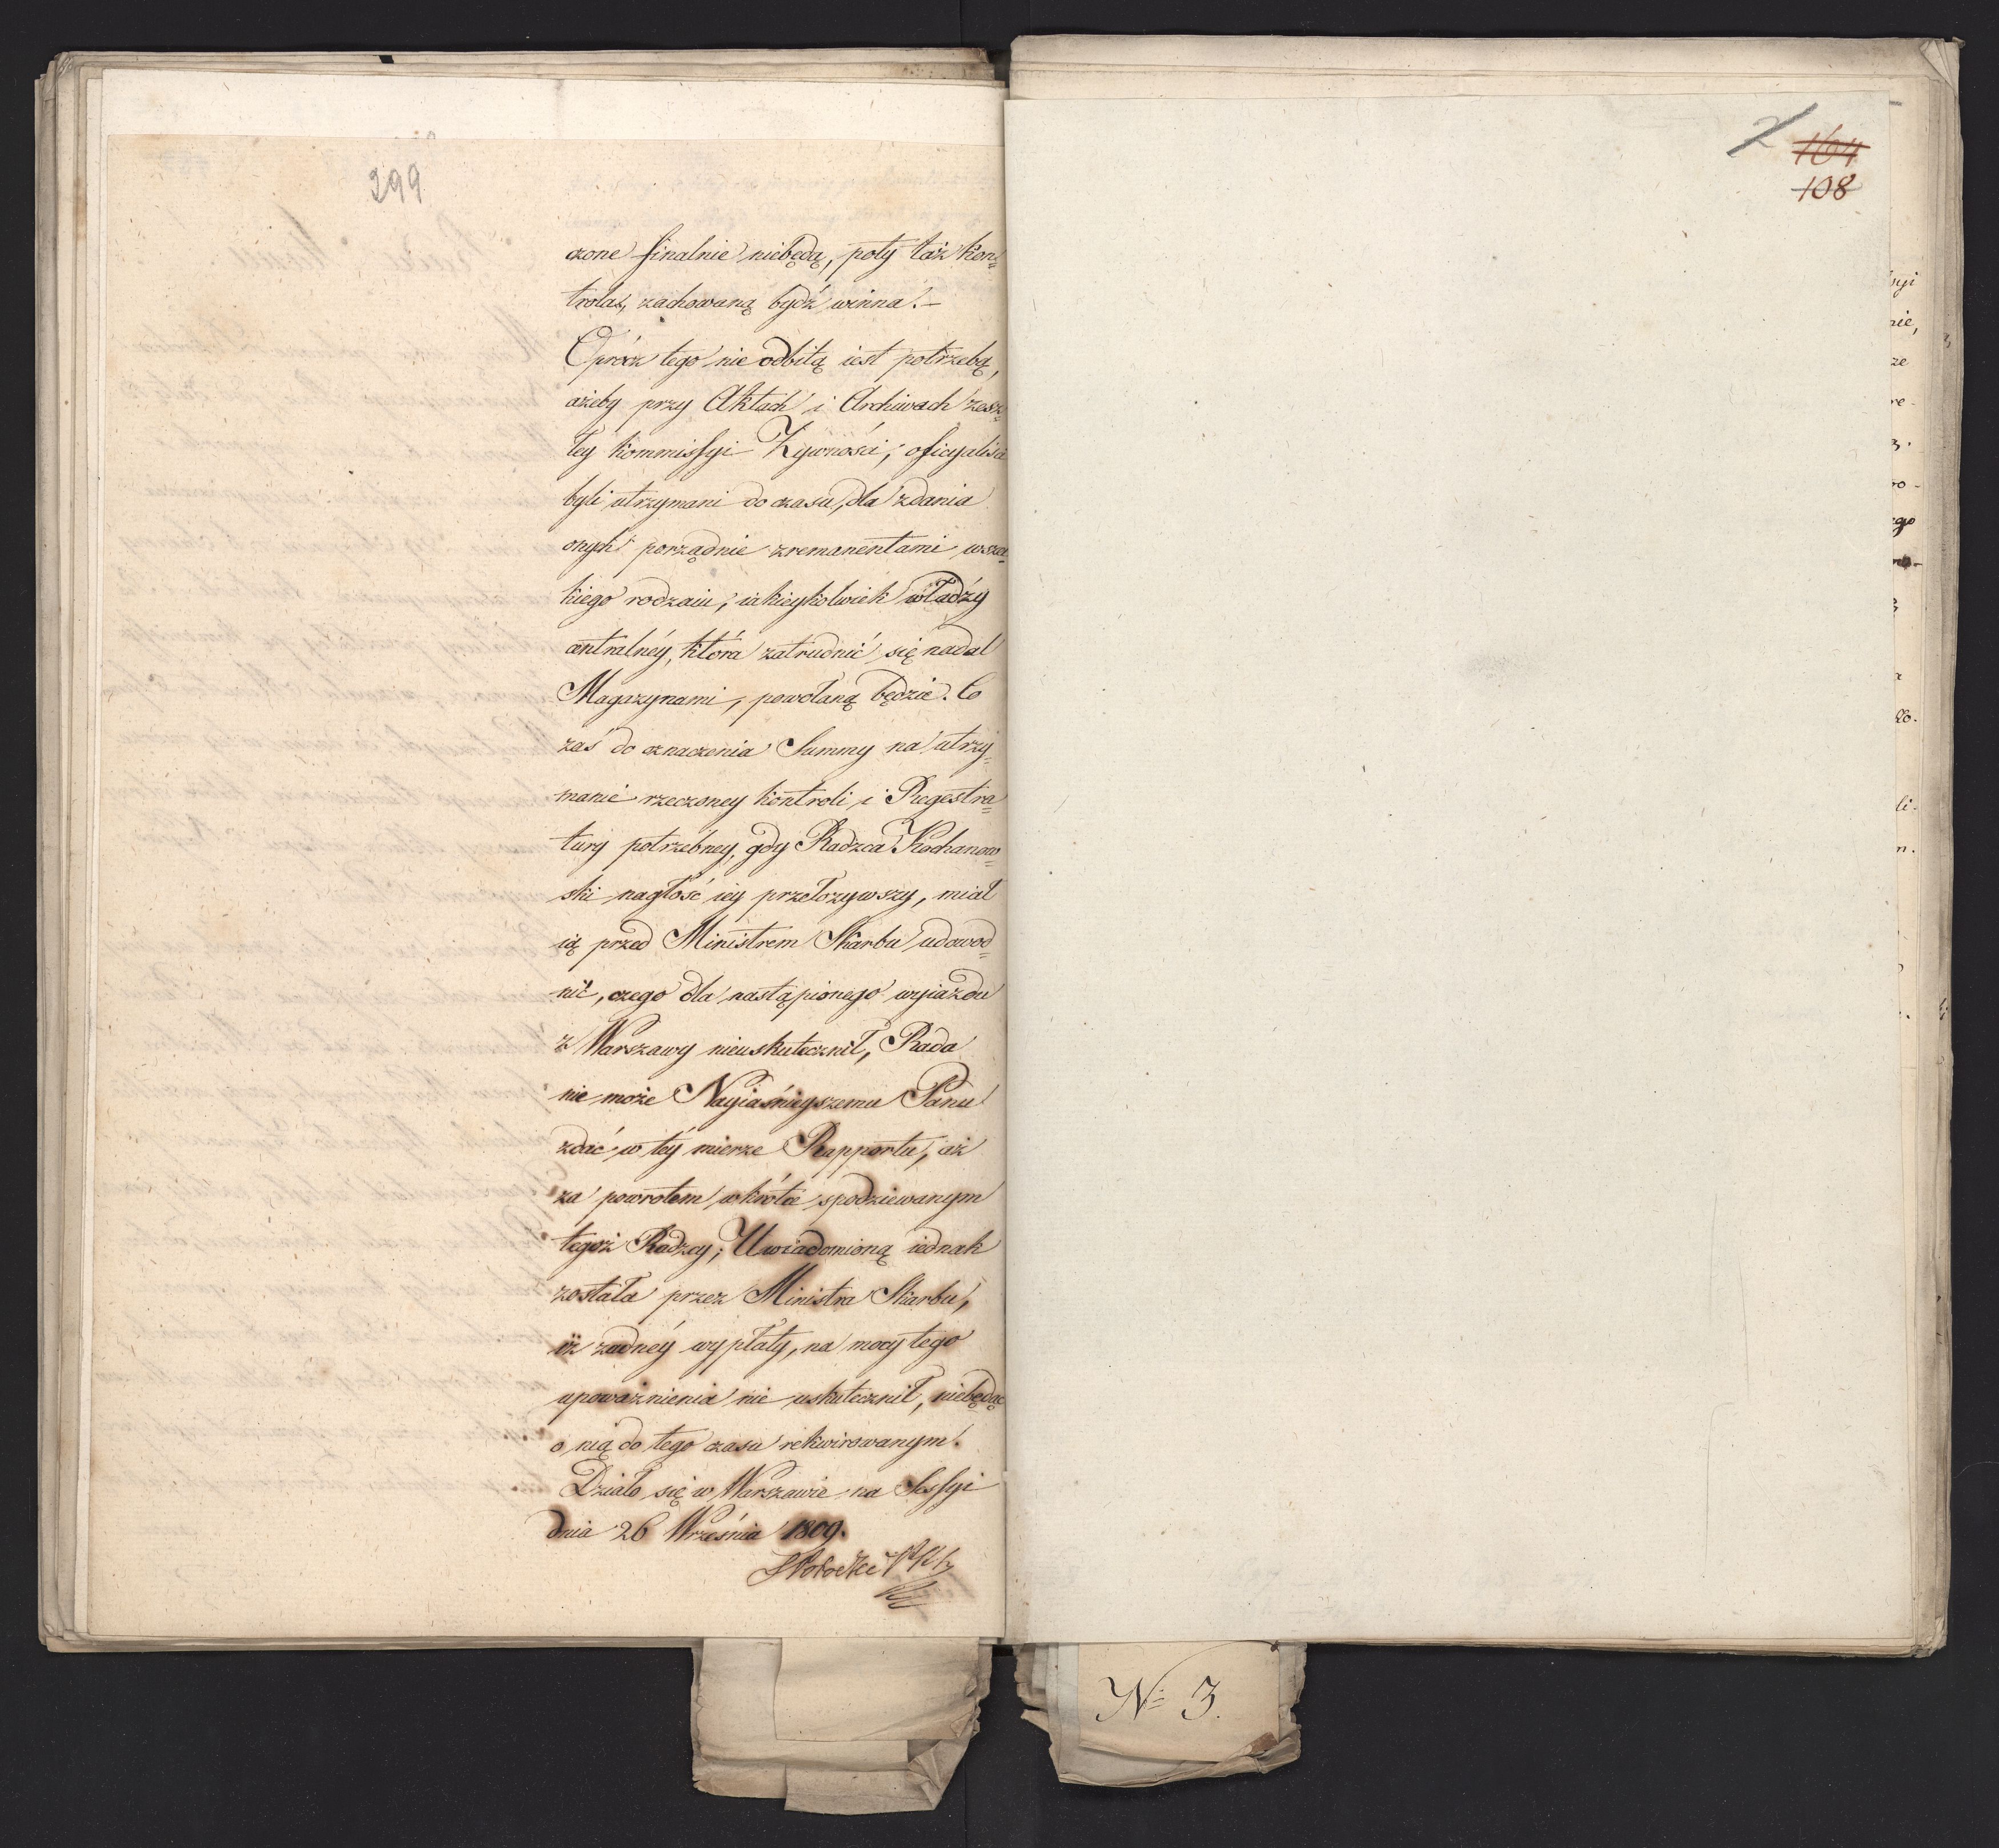 299
czone finalnie niebędą, poty taż kon=
trola, zachowaną bydź winna. –
Oprócz tego nie odbitą iest potrzebą,
ażeby przy Aktach i Archiwach zesz=
łey Kommissyi Żywności, oficyaliści
byli utrzymani do czasu, dla zdania
onych porządnie z remanentami wsze=
kiego rodzaiu, iakieykolwiek władzy
centralnéy, która zatrudnić się nadal
Magazynami, powołaną będzie. Co
zaś do oznaczenia Summy na utrzy=
manie rzeczoney kontroli i Regestra=
tury potrzébney, gdy Radzca Kochanow=
ski nagłość iéy przełożywszy, miał
ią przed Ministrem Skarbu udowod=
nić, czego dla nastąpionego wyiazdu
z Warszawy nieuskutecznił, Rada
nie może Nayiaśnieyszemu Panu
zdać w téy mierze Rapportu, aż
za powrotem wkrótce spodziewanym
tegoż Radzcy; Uwiadomioną iednak
została przez Ministra Skarbu,
iż żadnéy wypłaty, na mocy tego
upoważnienia nie uskutecznił, niebędąc
o nią do tego czasu rekwirowanym.
Działo się w Warszawie na Sessyi
dnia 26 Września 1809.
2
164
108
No 3.